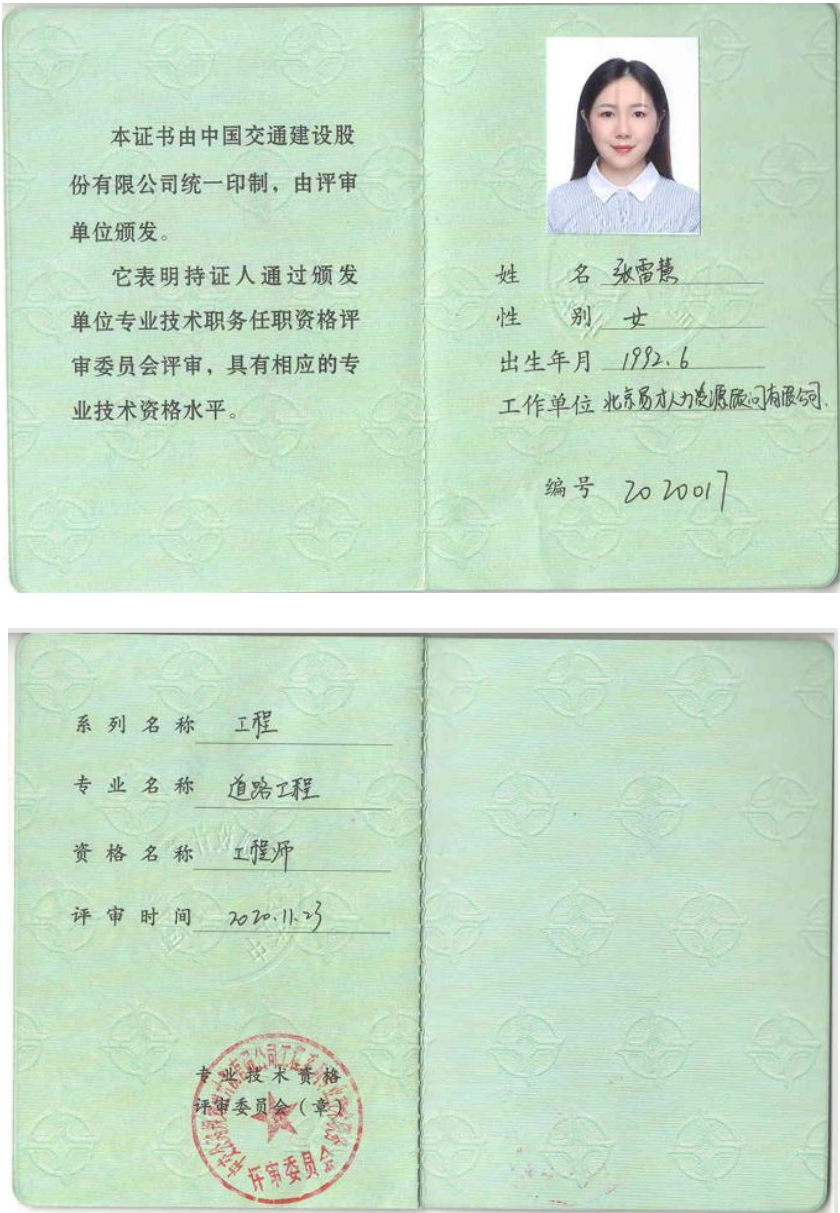 本证书由中国交通建设股
份有限公司统一印制，由评审
单位颁发。
它表明持证人通过颁发
单位专业技术职务任职资格评
审委员会评审，具有相应的专
业技术资格水平。
姓 名 张雷慧
性 别 女
出生年月 1992.6
工作单位 北京易才人力资源顾问有限公司.
编号 2020017
系列名称 工程
专业名称 道路工程
资格名称 工程师
评审时间 2020.11.23
专业技术资格
评审委员会（章）
评审委员会